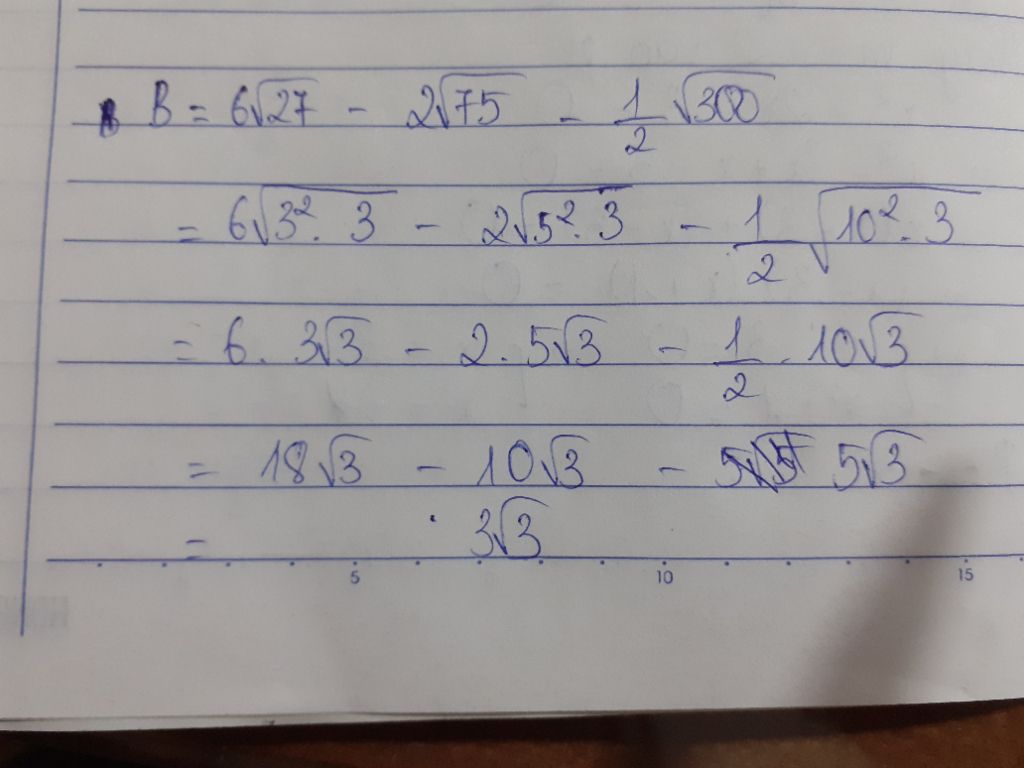 B = 6√27 - 2√75 - 1/2 √300
= 6√3². 3 - 2√5². 3 - 1/2 √10². 3
= 6. 3√3 - 2. 5√3 - 1/2 . 10√3
= 18√3 - 10√3 - 5√3
= 3√3
5 10 15